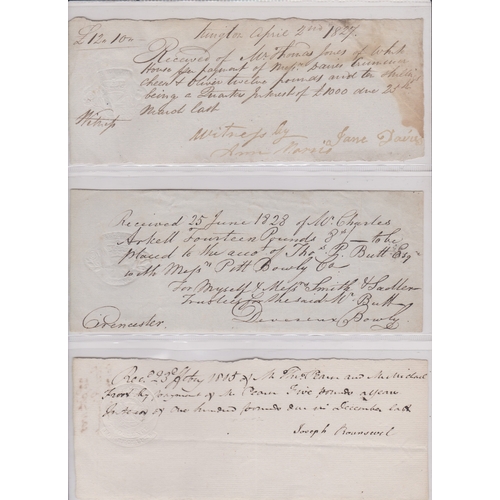 £12. 10
Kington April 2nd 1827.
Received of Mr Thomas Jones of White
House payment of Messrs Davies
twelve pounds and ten shillings
being a Quarter Interest of £1000 due 25th
March last
Witness
Witness by Jane Davies
Ann
Received 25 June 1828 of Mr Charles
Arkell Fourteen Pounds 8d — to be
placed to the accot of Thos. P. Butt Esqr
with Messrs Pitt Bowly Co
For Myself & Messrs Smith & Sadler
Trustees for the said Mr Butt
Cirencester. Devereux Bowly
Recd 23d 1815 of Mr Pearn and Mr Michael
Frost by payment of Mr Pearn Five pounds a year
Interest of one hundred pounds due in December last
Joseph Rounsevel